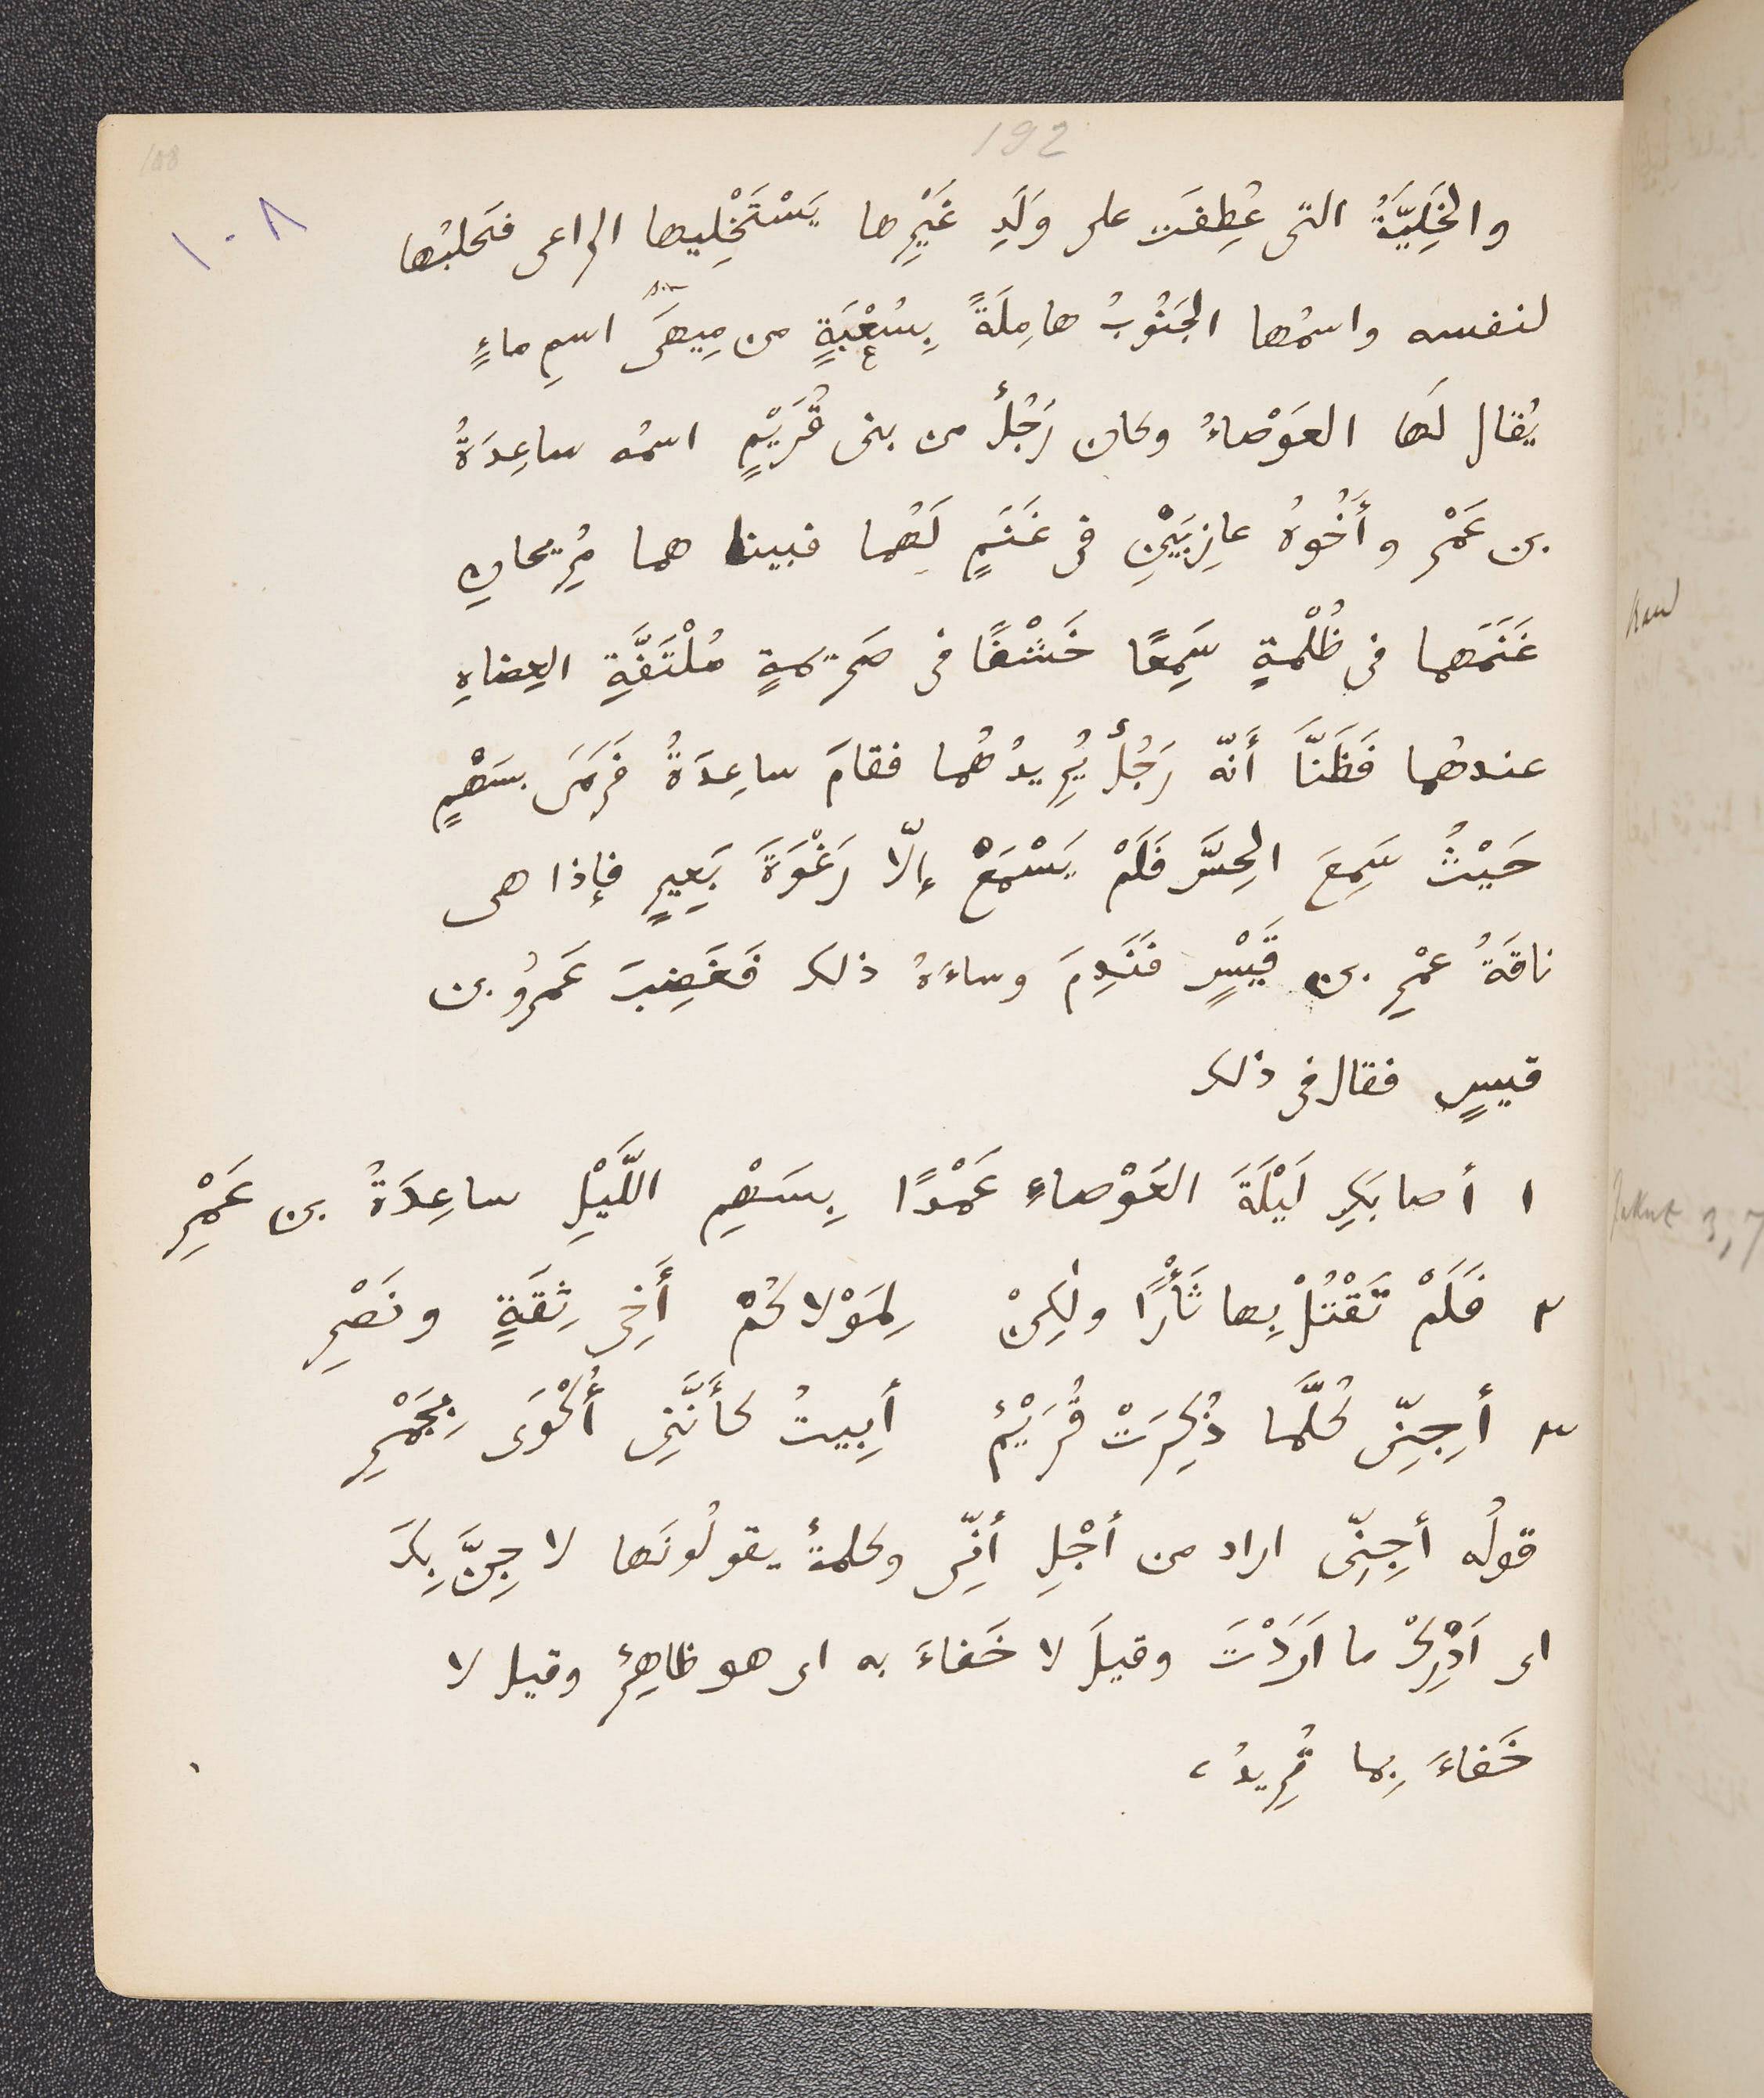 192
108
١٠٨
والخَلِيَّةُ التى عُطِفَت على وَلَدِ غَيْرِها يَسْتَخْلِيها الراعى فتحلبُها
لنفسه واسمُها الجَنُوبُ هامِلَةً بِشُعْبَةٍ من مِيهَى اسمِ ماءٍ
يُقال لَها العَوْصاءُ وكان رَجُلٌ من بنى قُرَيْمٍ اسمُه ساعِدَةُ
بن عَمْرٍ وأَخُوهُ عازِبَيْنِ فى غَنَمٍ لَهُما فبينا هما مُرِيحانِ
غَنَمَهما فى ظُلْمةٍ سَمِعًا خَشْفًا فى صَرِيمةٍ مُلْتَفَّةِ العِضاهِ
عندهُما فَظَنَّا أَنّه رَجُلٌ يُرِيدُهُما فقامَ ساعِدَةُ فَرَمَى بسَهْمٍ
حَيْثُ سَمِعَ الحِسَّ فَلَمْ يَسْمَعْ إلّا رَغْوَةَ بَعِيرٍ فإذا هى
ناقَةُ عمْرِ بن قَيْسٍ فَنَدِمَ وساءَهُ ذلك فَغَضِبَ عَمرُو بن
قيسٍ فقال فى ذلك
١ أصابَكِ لَيْلَةَ العَوْصاءِ عَمْدًا بِسَهْمِ اللَّيْلِ ساعِدَةُ بن عَمْرِ
٢ فَلَمْ تَقْتُلْ بِها ثَأْرًا ولٰكِنْ لِمَوْلاكُمْ أَخِى ثِقَةٍ ونَصْرِ
٣ أَجِنِّى كُلَّما ذُكِرَتْ قُرَيْمٌ أَبِيتُ كأَنَّنِى أُكْوَى بِجَمْرِ
قولُه أَجِنِّى اراد من أجْلِ أَنِّى وكلمةٌ يقولُونَها لا جِنَّ بِكَ
اى اَدْرِكْ ما اَرَدْتَ وقيلَ لا خَفاءَ به اى هو ظاهِرٌ وقيل لا
خَفاءَ بِما تُرِيدُ،